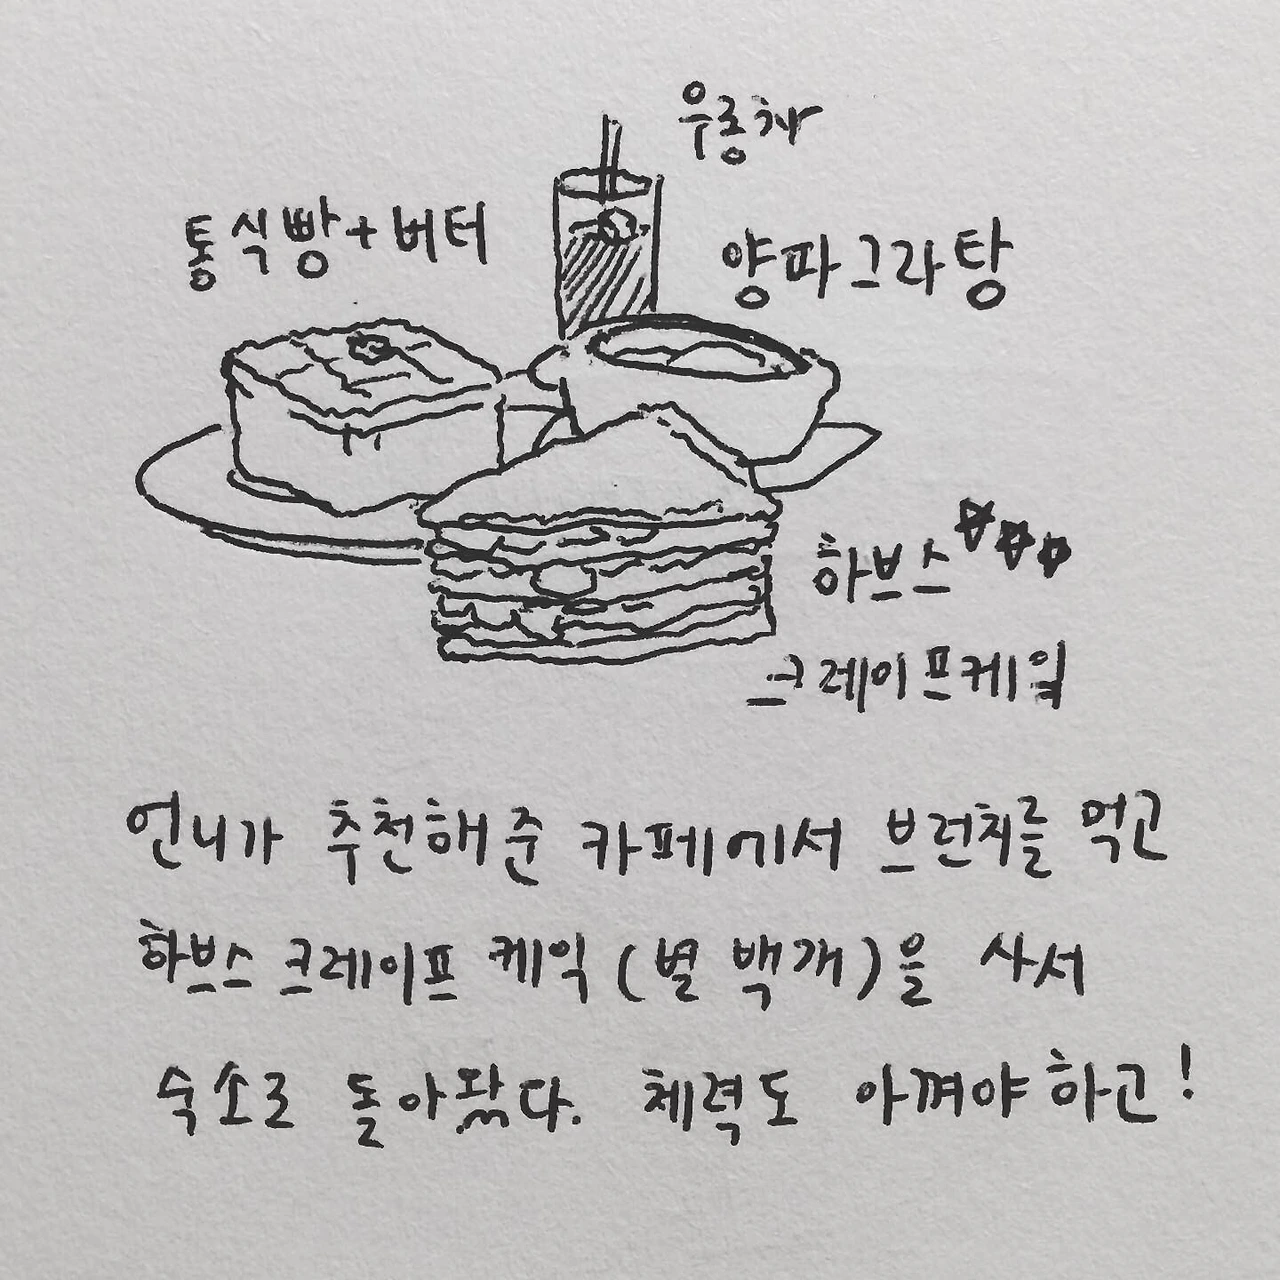 우롱차
통식빵+버터
양파그라탕
하브스☆☆☆
크레이프케익
언니가 추천해준 카페에서 브런치를 먹고
하브스 크레이프 케익(별 백개)을 사서
숙소로 돌아왔다. 체력도 아껴야하고!